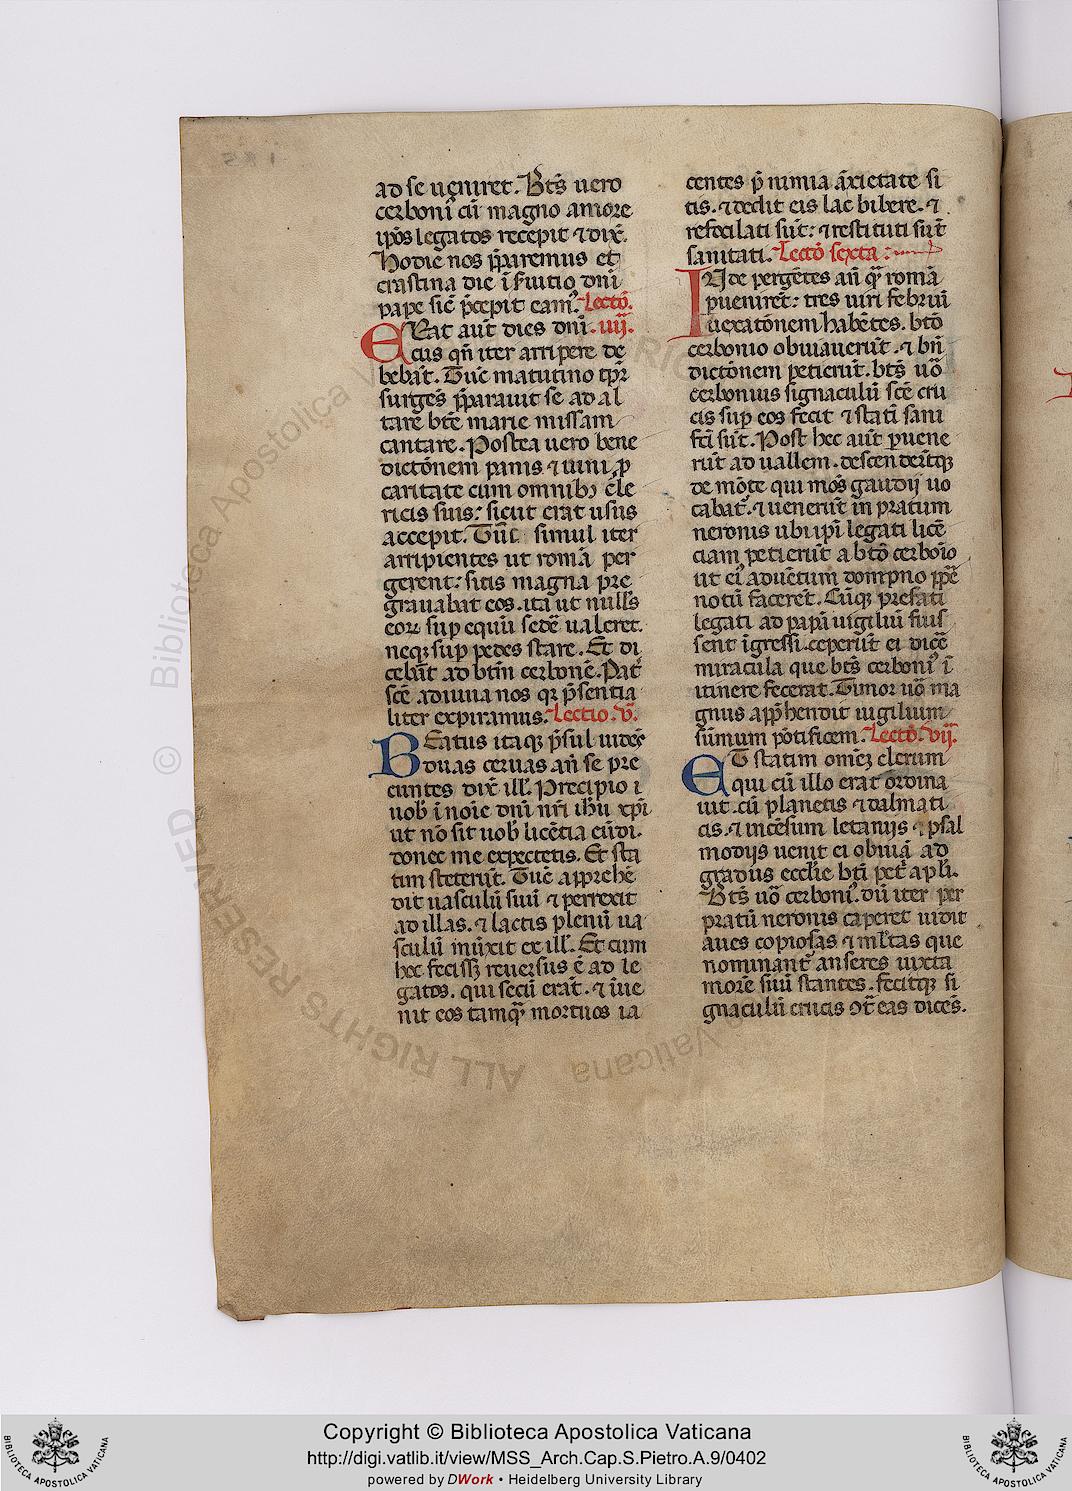 ad se ueniret. Bt̄s uero
cerboni᷒ cū magno amore
ip̄os legatos recepit ⁊ dix̄.
Hodie nos p̄paremus et
crastina die ī s̄uitio dn̄i
pape sic̄ p̄cepit eam᷒. Lectō.
ERat aut̄ dies dn̄i. iiij.
cus qn̄ iter arripere de
bebāt. Tūc matutino tp̄r
surgēs p̄parauit se ad al
tare bt̄e marie missam
cantare. Postea uero bene
dictōnem panis ⁊ uini ꝓ
caritate cum omnibꝫ cle
ricis suis: sicut erat usus
accepit. Tūc simul iter
arripientes ut romā per
gerent: sitis magna pre
grauabat eos. ita ut null᷒s
eoꝝ suꝑ equū sedē ualeret.
neqꝫ suꝑ pedes stare. Et di
cebāt ad btm̄ cerbonē. Pat̄
sc̄e adiuua nos qꝛ p̄sentia
liter expiramus. Lectio. v̄.
BEatus itaqꝫ p̄sul uidēs
duas ceruas an̄ se pre
euntes dix̄ ill̄. Precipio
uob̄ ī noīe dn̄i nr̄i ih̄u xp̄i
ut nō sit uob̄ licētia eūdi.
donec me expectetis. Et sta
tim steterūt. Tūc apprehē
dit uasculū suū ⁊ perrexit
ad illas. ⁊ lactis plenū ua
sculū mūxit ex ill̄. Et cum
hec fecissꝫ reuersus ē ad le
gatos. qui secū erāt. ⁊ īue
nit eos tamqͣ mortuos ia
centes p̄ nimia āxietate si
tis. ⁊ dedit eis lac bibere. ⁊
refocilati sūt: ⁊ restituti sūt
sanitati. Lectō sexta:
INde pergētes an̄ qͣ romā
ꝑuenirēt: tres uiri febriū
uexatōnem habētes. btō
cerbonio obuiauerūt. ⁊ bn̄
dictōnem petierūt. bt̄s uō
cerbonius signaculū scē cru
cis suꝑ eos fecit ⁊ statī sani
fc̄i sūt. Post hec aut̄ ꝑuene
rūt ad uallem. descenderūtqꝫ
de mōte qui mōs gaudij uo
cabat᷒. ⁊ uenerūt in pratum
neronis ubi ip̄i legati licē
ciam petierūt a btō cerboīo
ut ei᷒ aduētum dompno pp̄e
notū facerēt. Cūqꝫ prefati
legati ad papā uigiliū fuis
sent īgressi. ceperūt ei dicē
miracula que bt̄s cerboni᷒ ī
itinere fecerat. Timor uō ma
gnus app̄hendit uigilium
sūmum pōtificem. Lectō. vij.
ET statim omēꝫ clerum
qui cū illo erat ordina
uit. cū planetis ⁊ dalmati
cis. ⁊ incēsum letanijs ⁊ psal
modijs uenit ei obuiā ad
gradus eccl̄ie bt̄i pet᷒ apl̄i.
Bt̄s uō cerboni᷒. dū iter per
pratū neronis caperet uidit
aues copiosas ⁊ ml̄tas que
nominant᷒ anseres iuxta
morē suū stantes. fecitqꝫ si
gnaculū crucis ↄt᷒ eas dicēs.
© Biblioteca Apostolica Vaticana
ALL RIGHTS RESERVED
Copyright © Biblioteca Apostolica Vaticana
http://digi.vatlib.it/view/MSS_Arch.Cap.S.Pietro.A.9/0402
powered by DWork • Heidelberg University Library
BIBLIOTECA APOSTOLICA VATICANA
BIBLIOTECA APOSTOLICA VATICANA